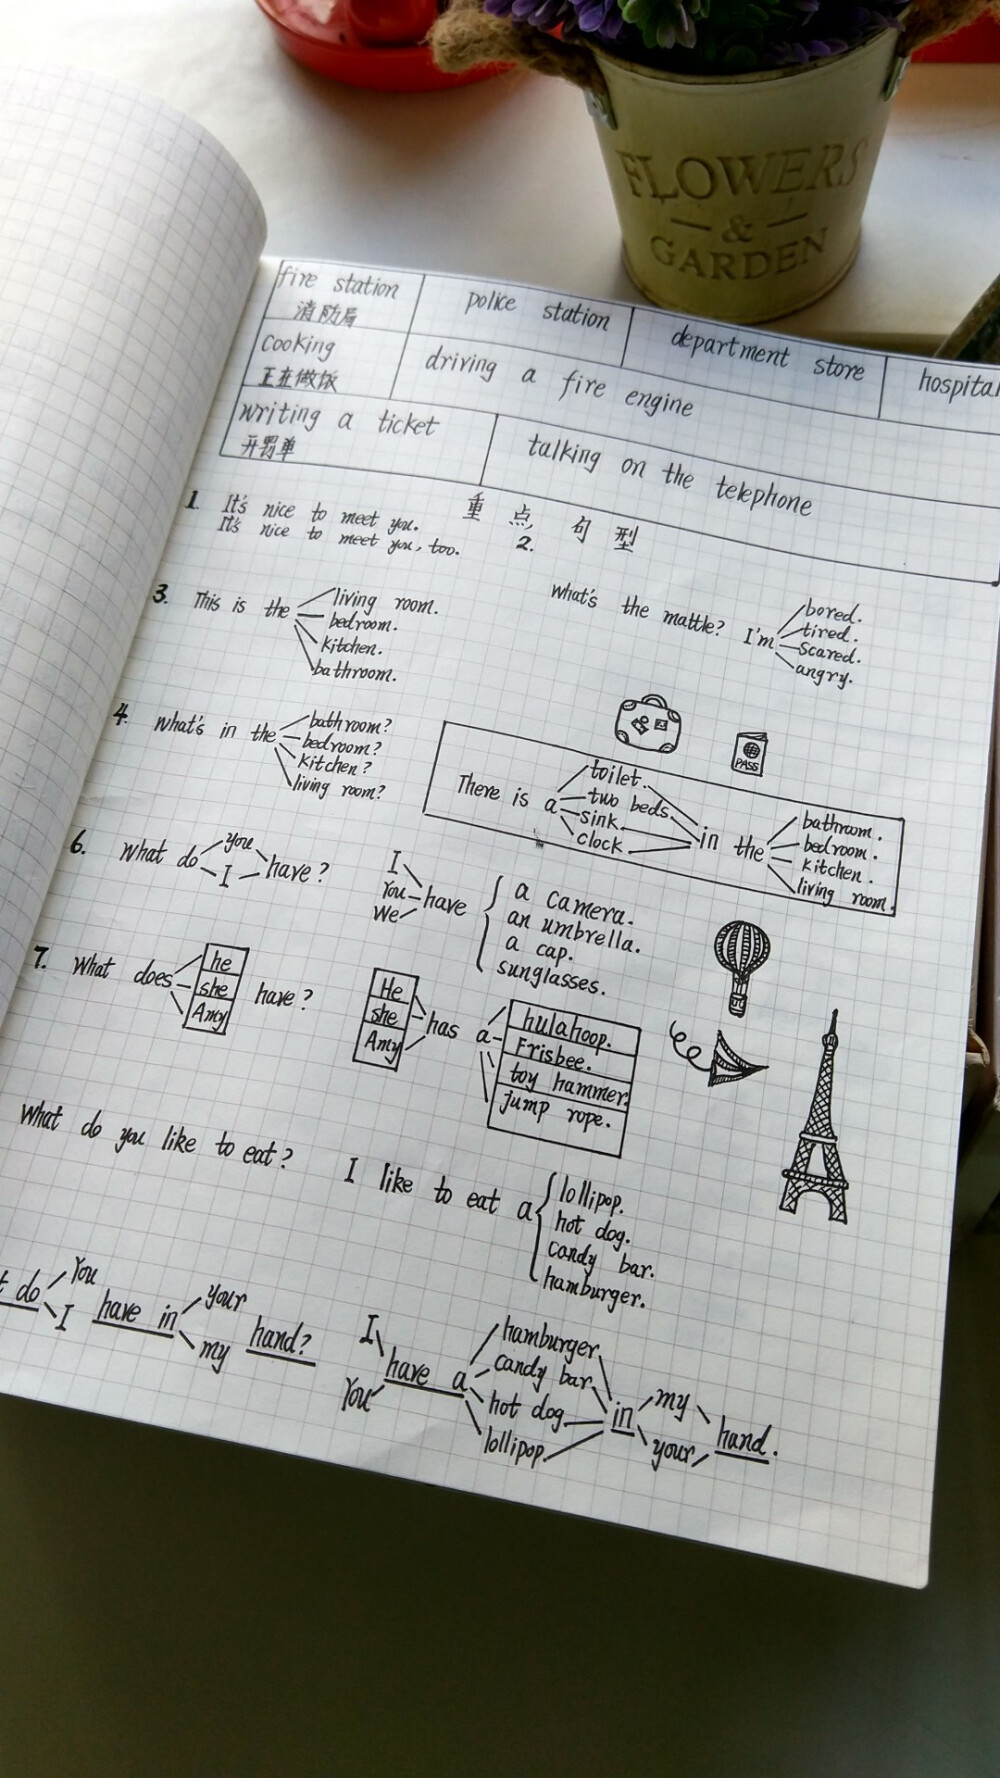 FLOWERS
&
GARDEN
fire station
消防局
police station
department store
hospital
cooking
正在做饭
driving a fire engine
writing a ticket
开罚单
talking on the telephone
重点句型
1. It's nice to meet you.
It's nice to meet you, too.
2.
what's the mattle? I'm
bored.
tired.
scared.
angry.
3. This is the
living room.
bedroom.
kitchen.
bathroom.
4. what's in the
bathroom?
bedroom?
kitchen?
living room?
PASS
There is a
toilet.
two beds.
sink.
clock
in the
bathroom.
bedroom.
kitchen.
living room.
6. what do
you
I
have?
I
You
we
have
a camera.
an umbrella.
a cap.
sunglasses.
7. what does
he
she
Amy
have?
He
she
Amy
has a
hulahoop.
Frisbee.
toy hammer.
jump rope.
what do you like to eat?
I like to eat a
lollipop.
hot dog.
candy bar.
hamburger.
t do
You
I
have in
your
my
hand?
I
You
have a
hamburger
candy bar
hot dog
lollipop.
in
my
your
hand.